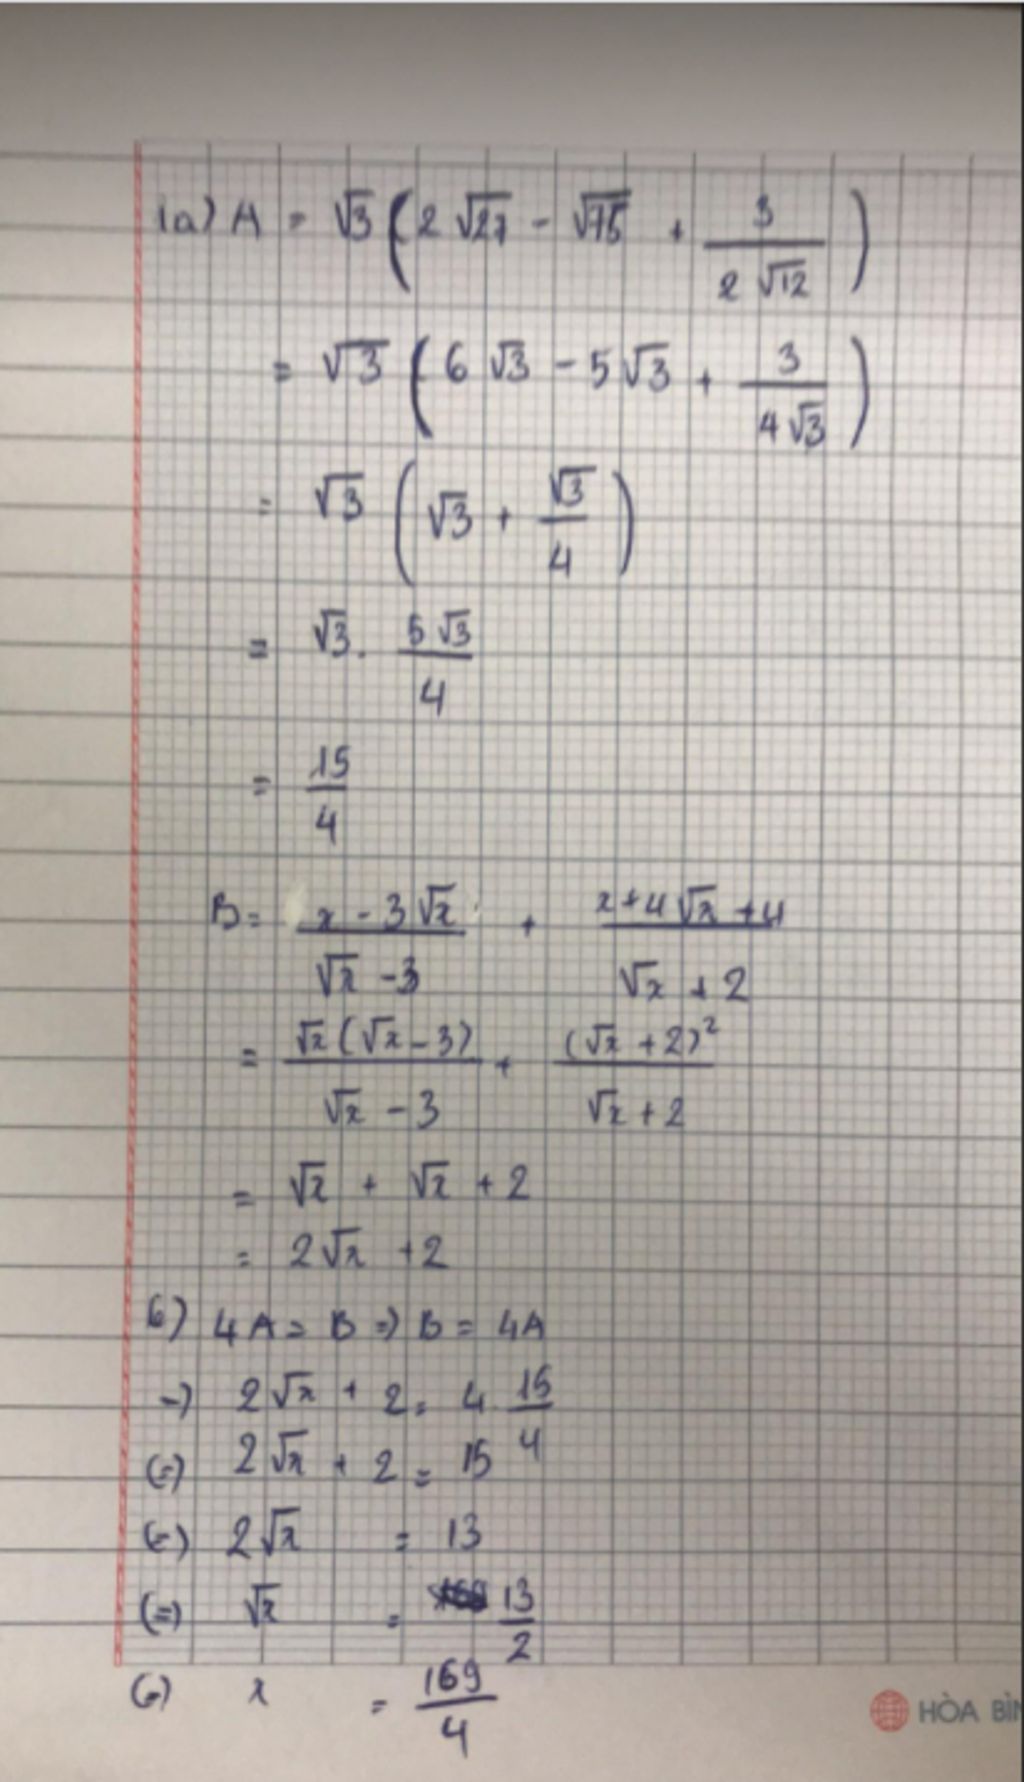 1a) A = √3 (2√27 - √75 + 3/(2√12))
= √3 (6√3 - 5√3 + 3/(4√3))
= √3 (√3 + √3/4)
= √3 . 5√3/4
= 15/4
B = (x - 3√x)/(√x - 3) + (x + 4√x + 4)/(√x + 2)
= √x(√x - 3)/(√x - 3) + (√x + 2)²/(√x + 2)
= √x + √x + 2
= 2√x + 2
b) 4A = B => B = 4A
-) 2√x + 2 = 4 . 15/4
(=) 2√x + 2 = 15
(=) 2√x = 13
(=) √x = 13/2
(=) x = 169/4
HÒA BÌN